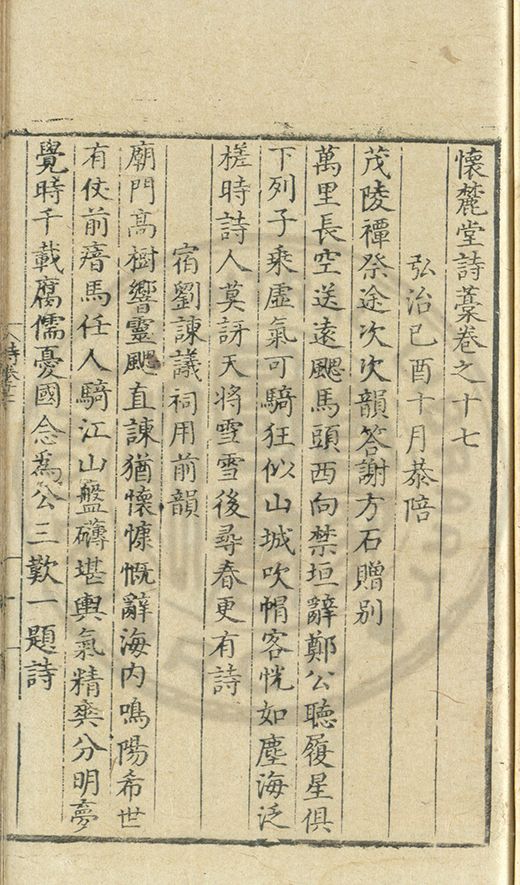 懷麓堂詩藁卷之十七
弘治己酉十月恭陪
茂陵禫祭途次次韻答謝方石贈別
萬里長空送遠颸馬頭西向禁垣辭鄭公聴履星俱
下列子乘虛氣可騎狂似山城吹帽客恍如塵海泛
槎時詩人莫訝天將雪雪後尋春更有詩
宿劉諫議祠用前韻
廟門髙樹響靈颸直諫猶懷慷慨辭海内鳴陽希世
有仗前瘖馬任人騎江山盤礴堪輿氣精爽分明夢
覺時千載腐儒憂國念為公三歎一題詩